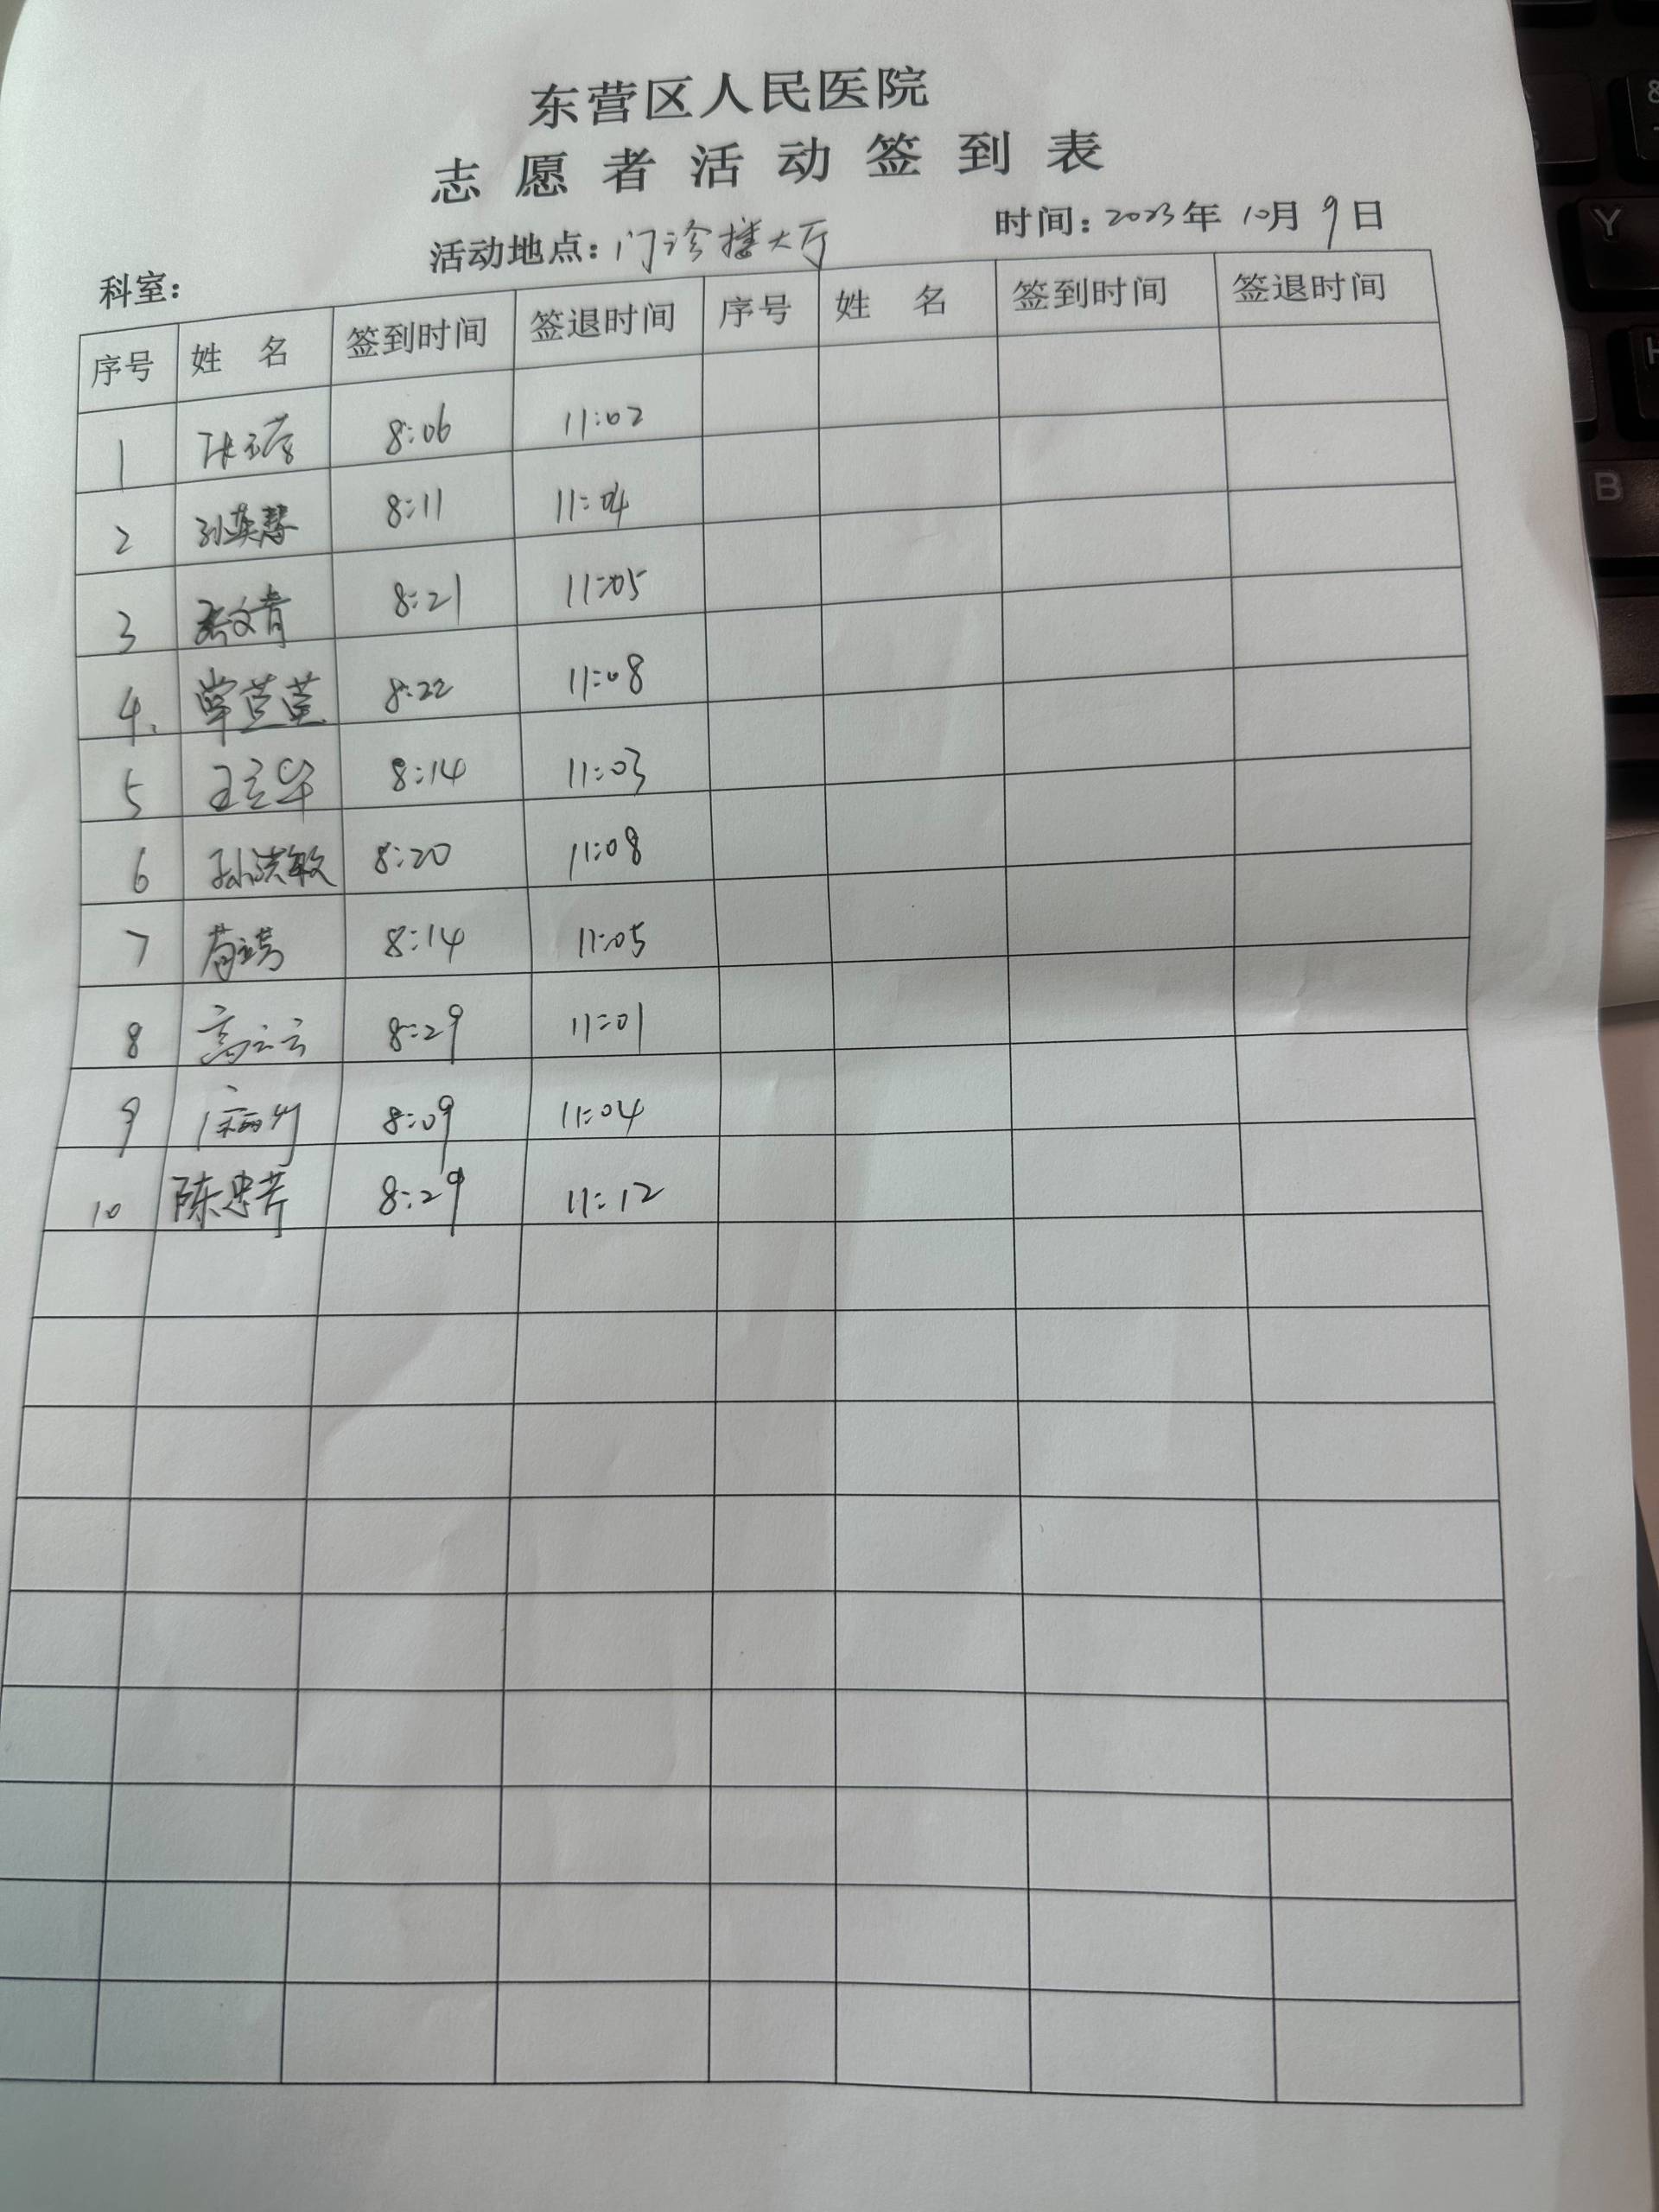 东营区人民医院
志愿者活动签到表
科室: 活动地点: 门诊楼大厅 时间: 2023年 10月 9日
序号 姓 名 签到时间 签退时间 序号 姓 名 签到时间 签退时间
1 8:06 11:02
2 孙英慧 8:11 11:04
3 8:21 11:05
4. 8:22 11:08
5 王立华 8:14 11:03
6 孙洪敏 8:20 11:08
7 8:14 11:05
8 高云云 8:29 11:01
9 8:09 11:04
10 陈忠芹 8:29 11:12
Y
B